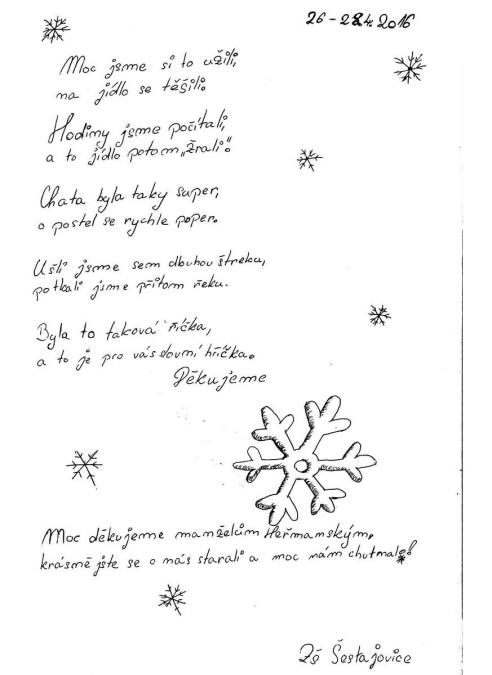 26 - 28.4. 2016
Moc jsme si to užili,
na jídlo se těšili.
Hodiny jsme počítali,
a to jídlo potom „žrali".
Chata byla taky super,
o postel se rychle poper.
Ušli jsme sem dlouhou štreku,
potkali jsme přitom řeku.
Byla to taková říčka,
a to je pro vás slovní hříčka.
Děkujeme
Moc děkujeme manželům Heřmanským,
krásně jste se o nás starali a moc nám chutnalo!
ZŠ Šestajovice